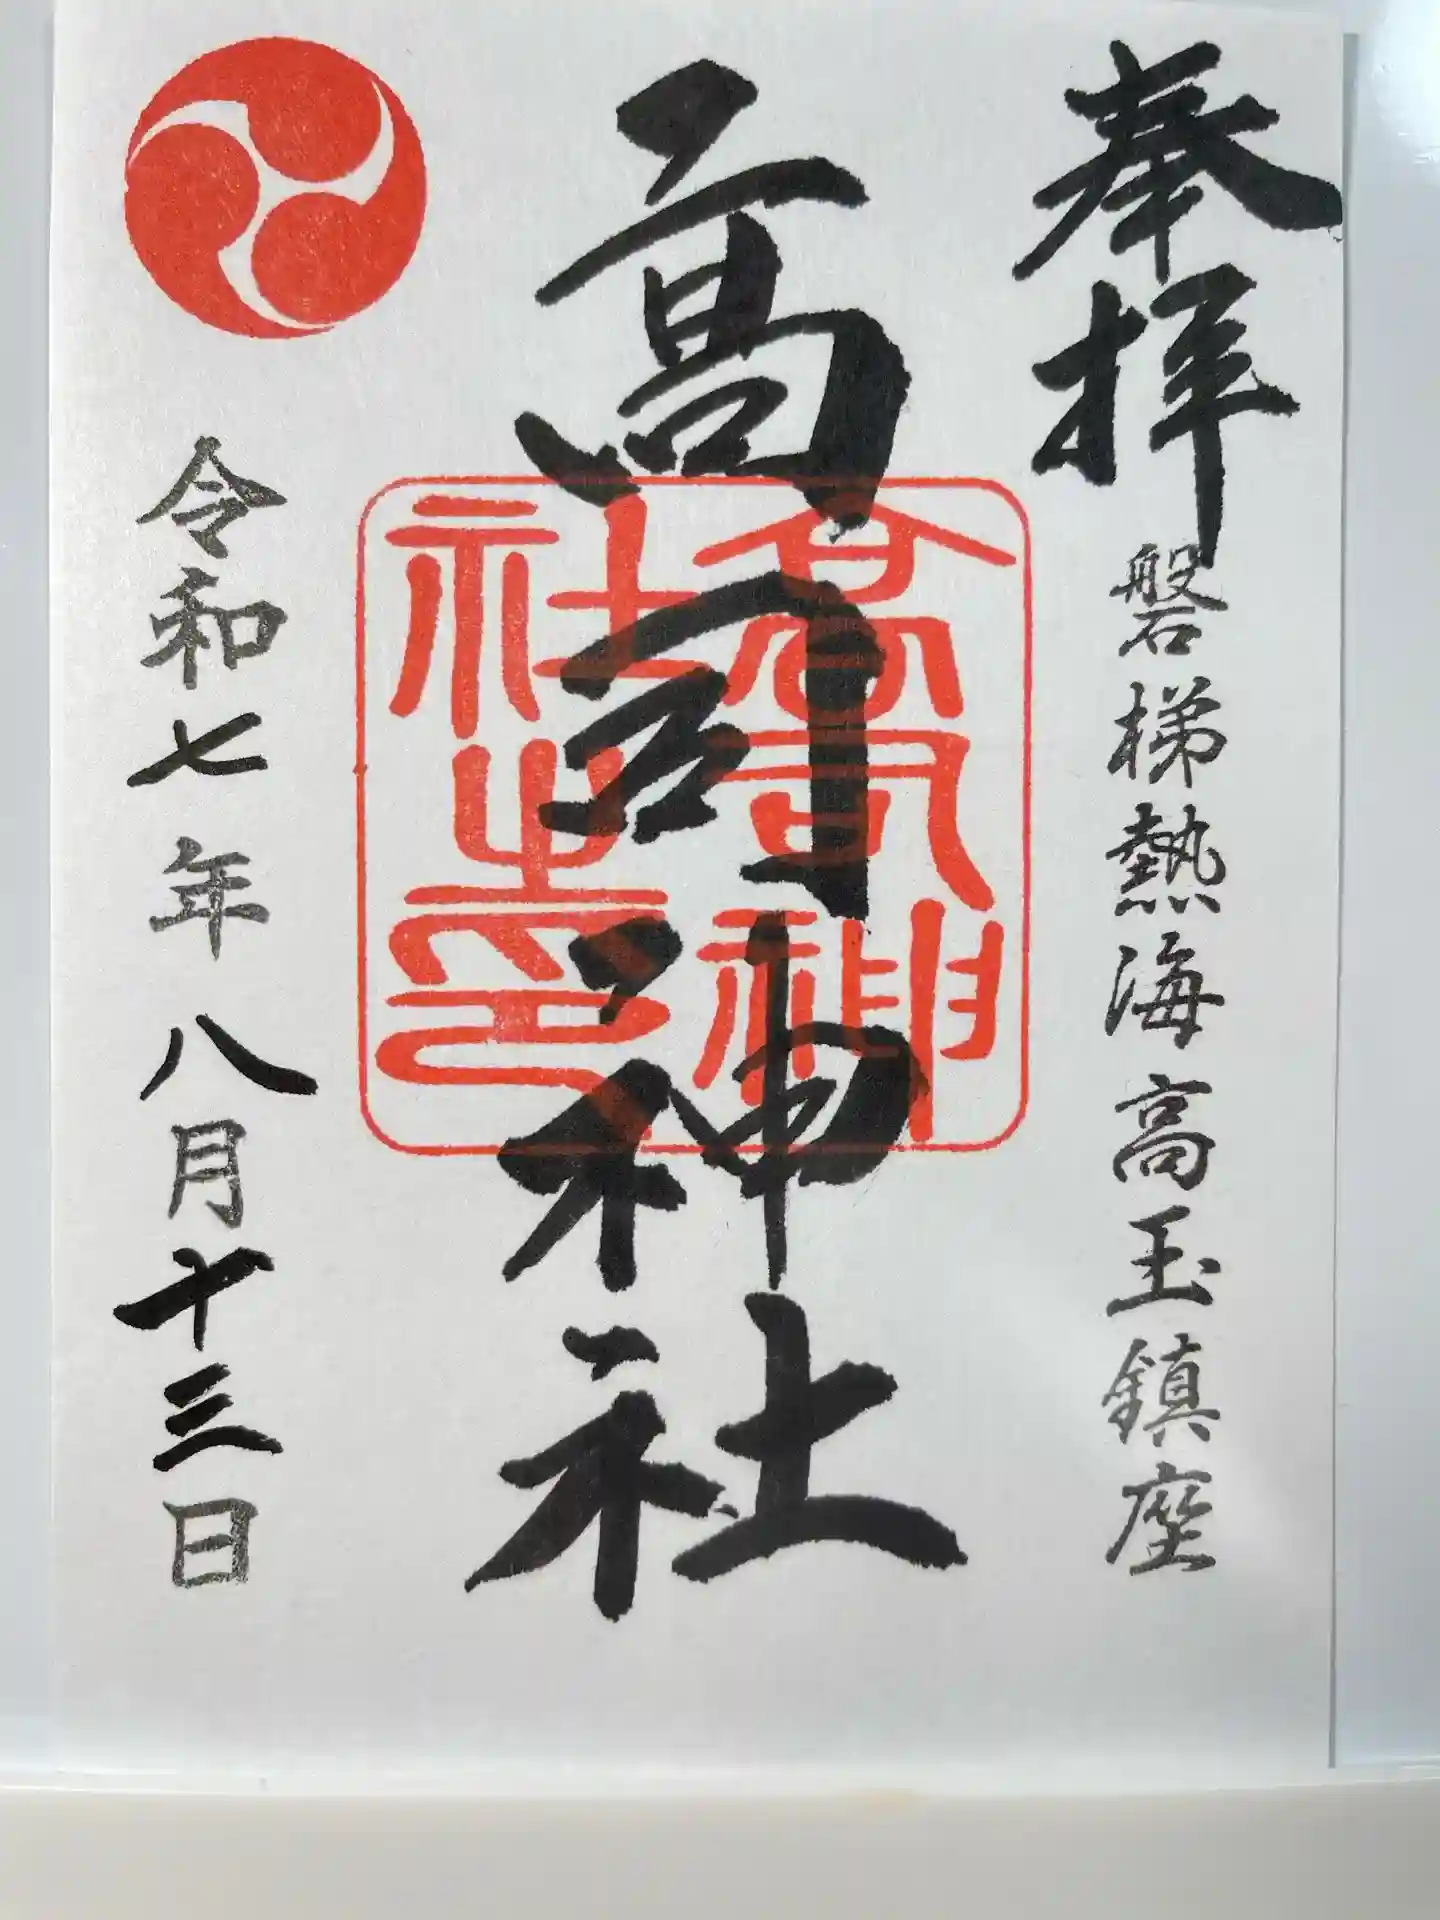 奉拝
磐梯熱海高玉鎮座
高司神社
高司神社之印
令和七年八月十三日